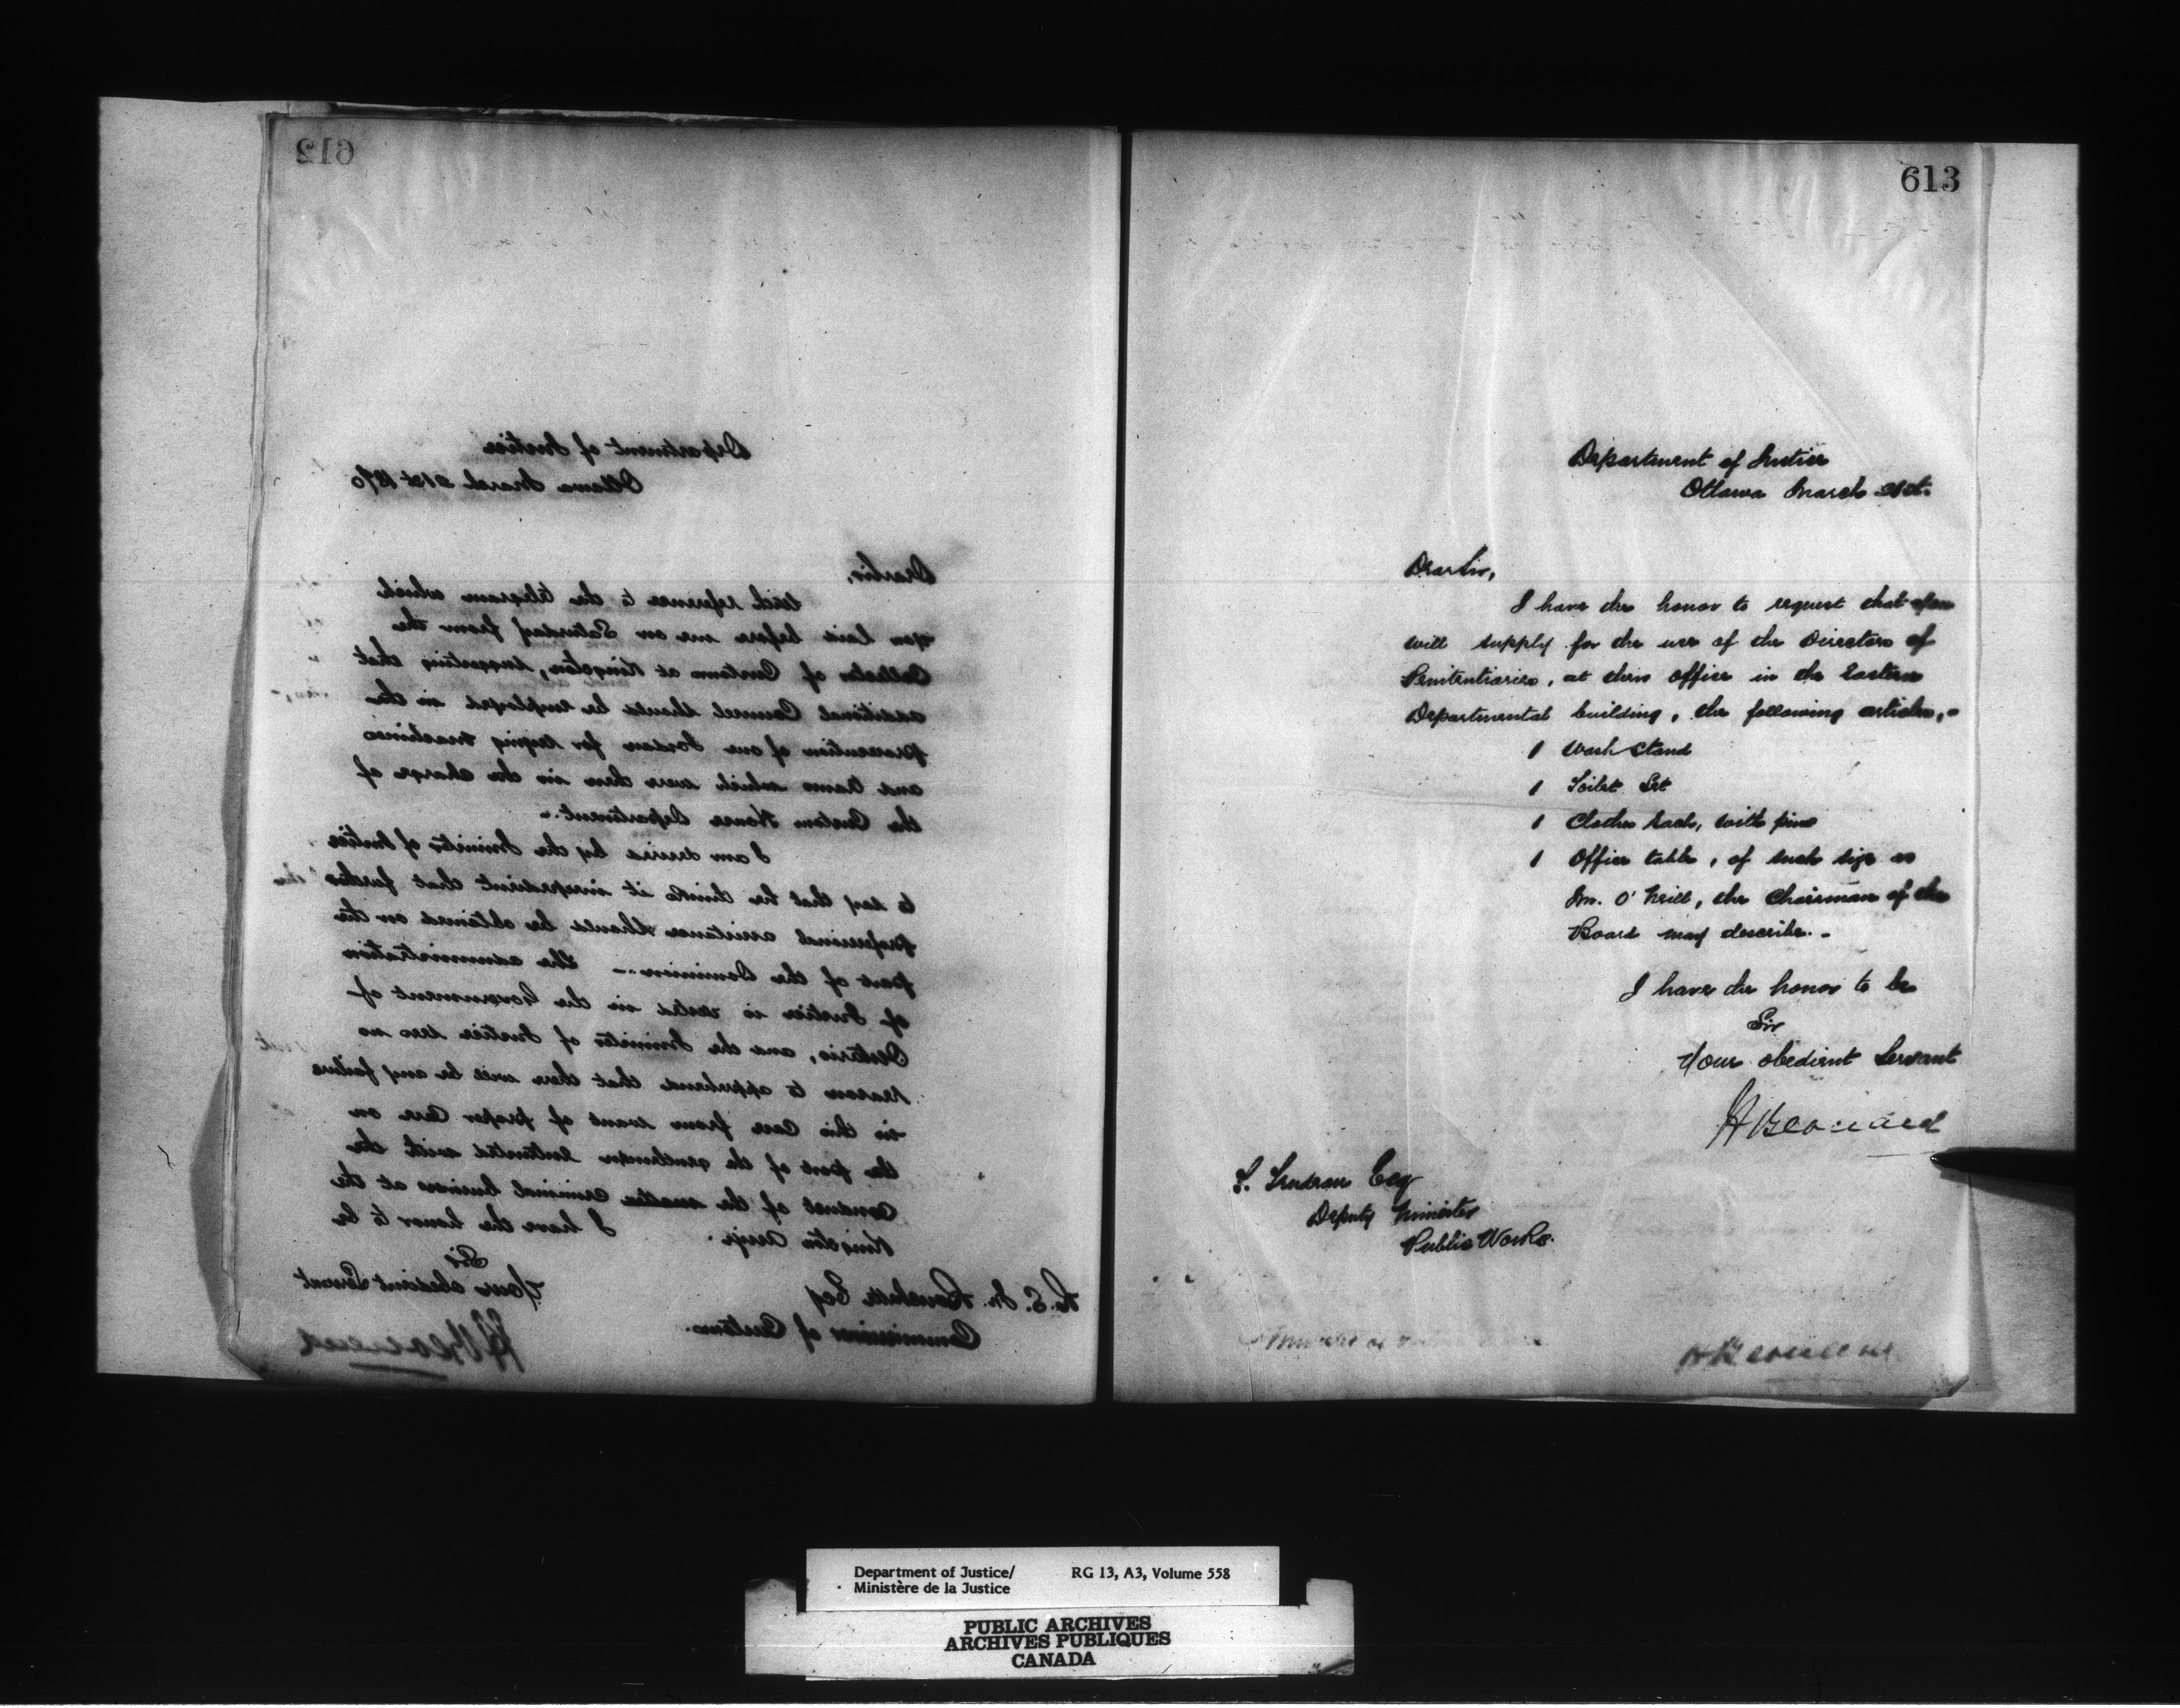 612
Department of Justice
Ottawa March 21st 1870
Dear Sir,
With reference to the telegram which
you laid before me on Saturday from the
Collector of Customs at Kingston, suggesting that
additional Counsel should be employed in the
prosecution of one Jordan for
and which were then in the charge of
the Custom House Department.-
I am desired by the Minister of Justice
to say that he thinks it inexpedient that further
professional assistance should be obtained on the
part of the Dominion.- The administration
of Justice is vested in the Government of
Ontario, and the Minister of Justice sees no
reason to apprehend that there will be any failure
in this Case from want of proper Care on
the part of the gentleman entrusted with the
conduct of the criminal business at the
Kingston Assizes. I have the honor to be
Sir
Your obedient Servant
H Bernard
R. S. M. Bouchette Esq
Commissioner of Customs.
613
Department of Justice
Ottawa March 21st.
Dear Sir,
I have the honor to request that you
will supply for the use of the Directors of
Penitentiaries, at their office in the Eastern
Departmental building, the following articles,-
1 Wash Stand
1 Toilet Set
1 Clothes Rack, with pins
1 Office table, of such size as
Mr. O'Neill, the Chairman of the
Board may describe.-
I have the honor to be
Sir
Your obedient Servant
H Bernard
T. Trudeau Esq
Deputy Minister
Public Works.
H Bernard
Department of Justice/ RG 13, A3, Volume 558
Ministère de la Justice
PUBLIC ARCHIVES
ARCHIVES PUBLIQUES
CANADA